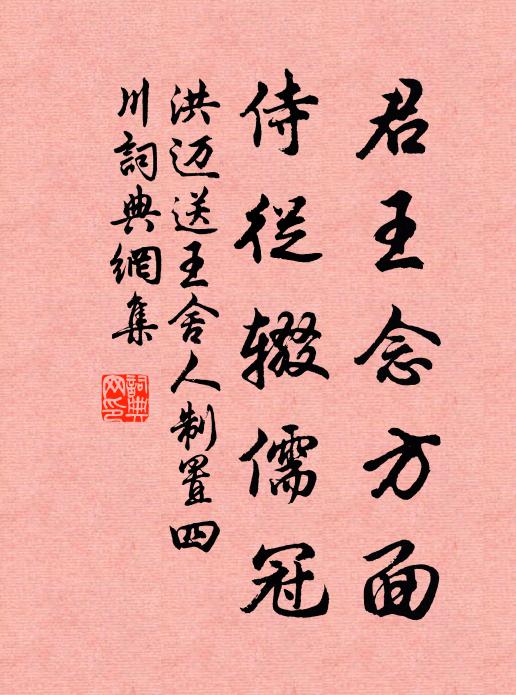 君王念方面
侍從辍儒冠
洪迈送王舍人制置四
川詞典網集
詞典網印